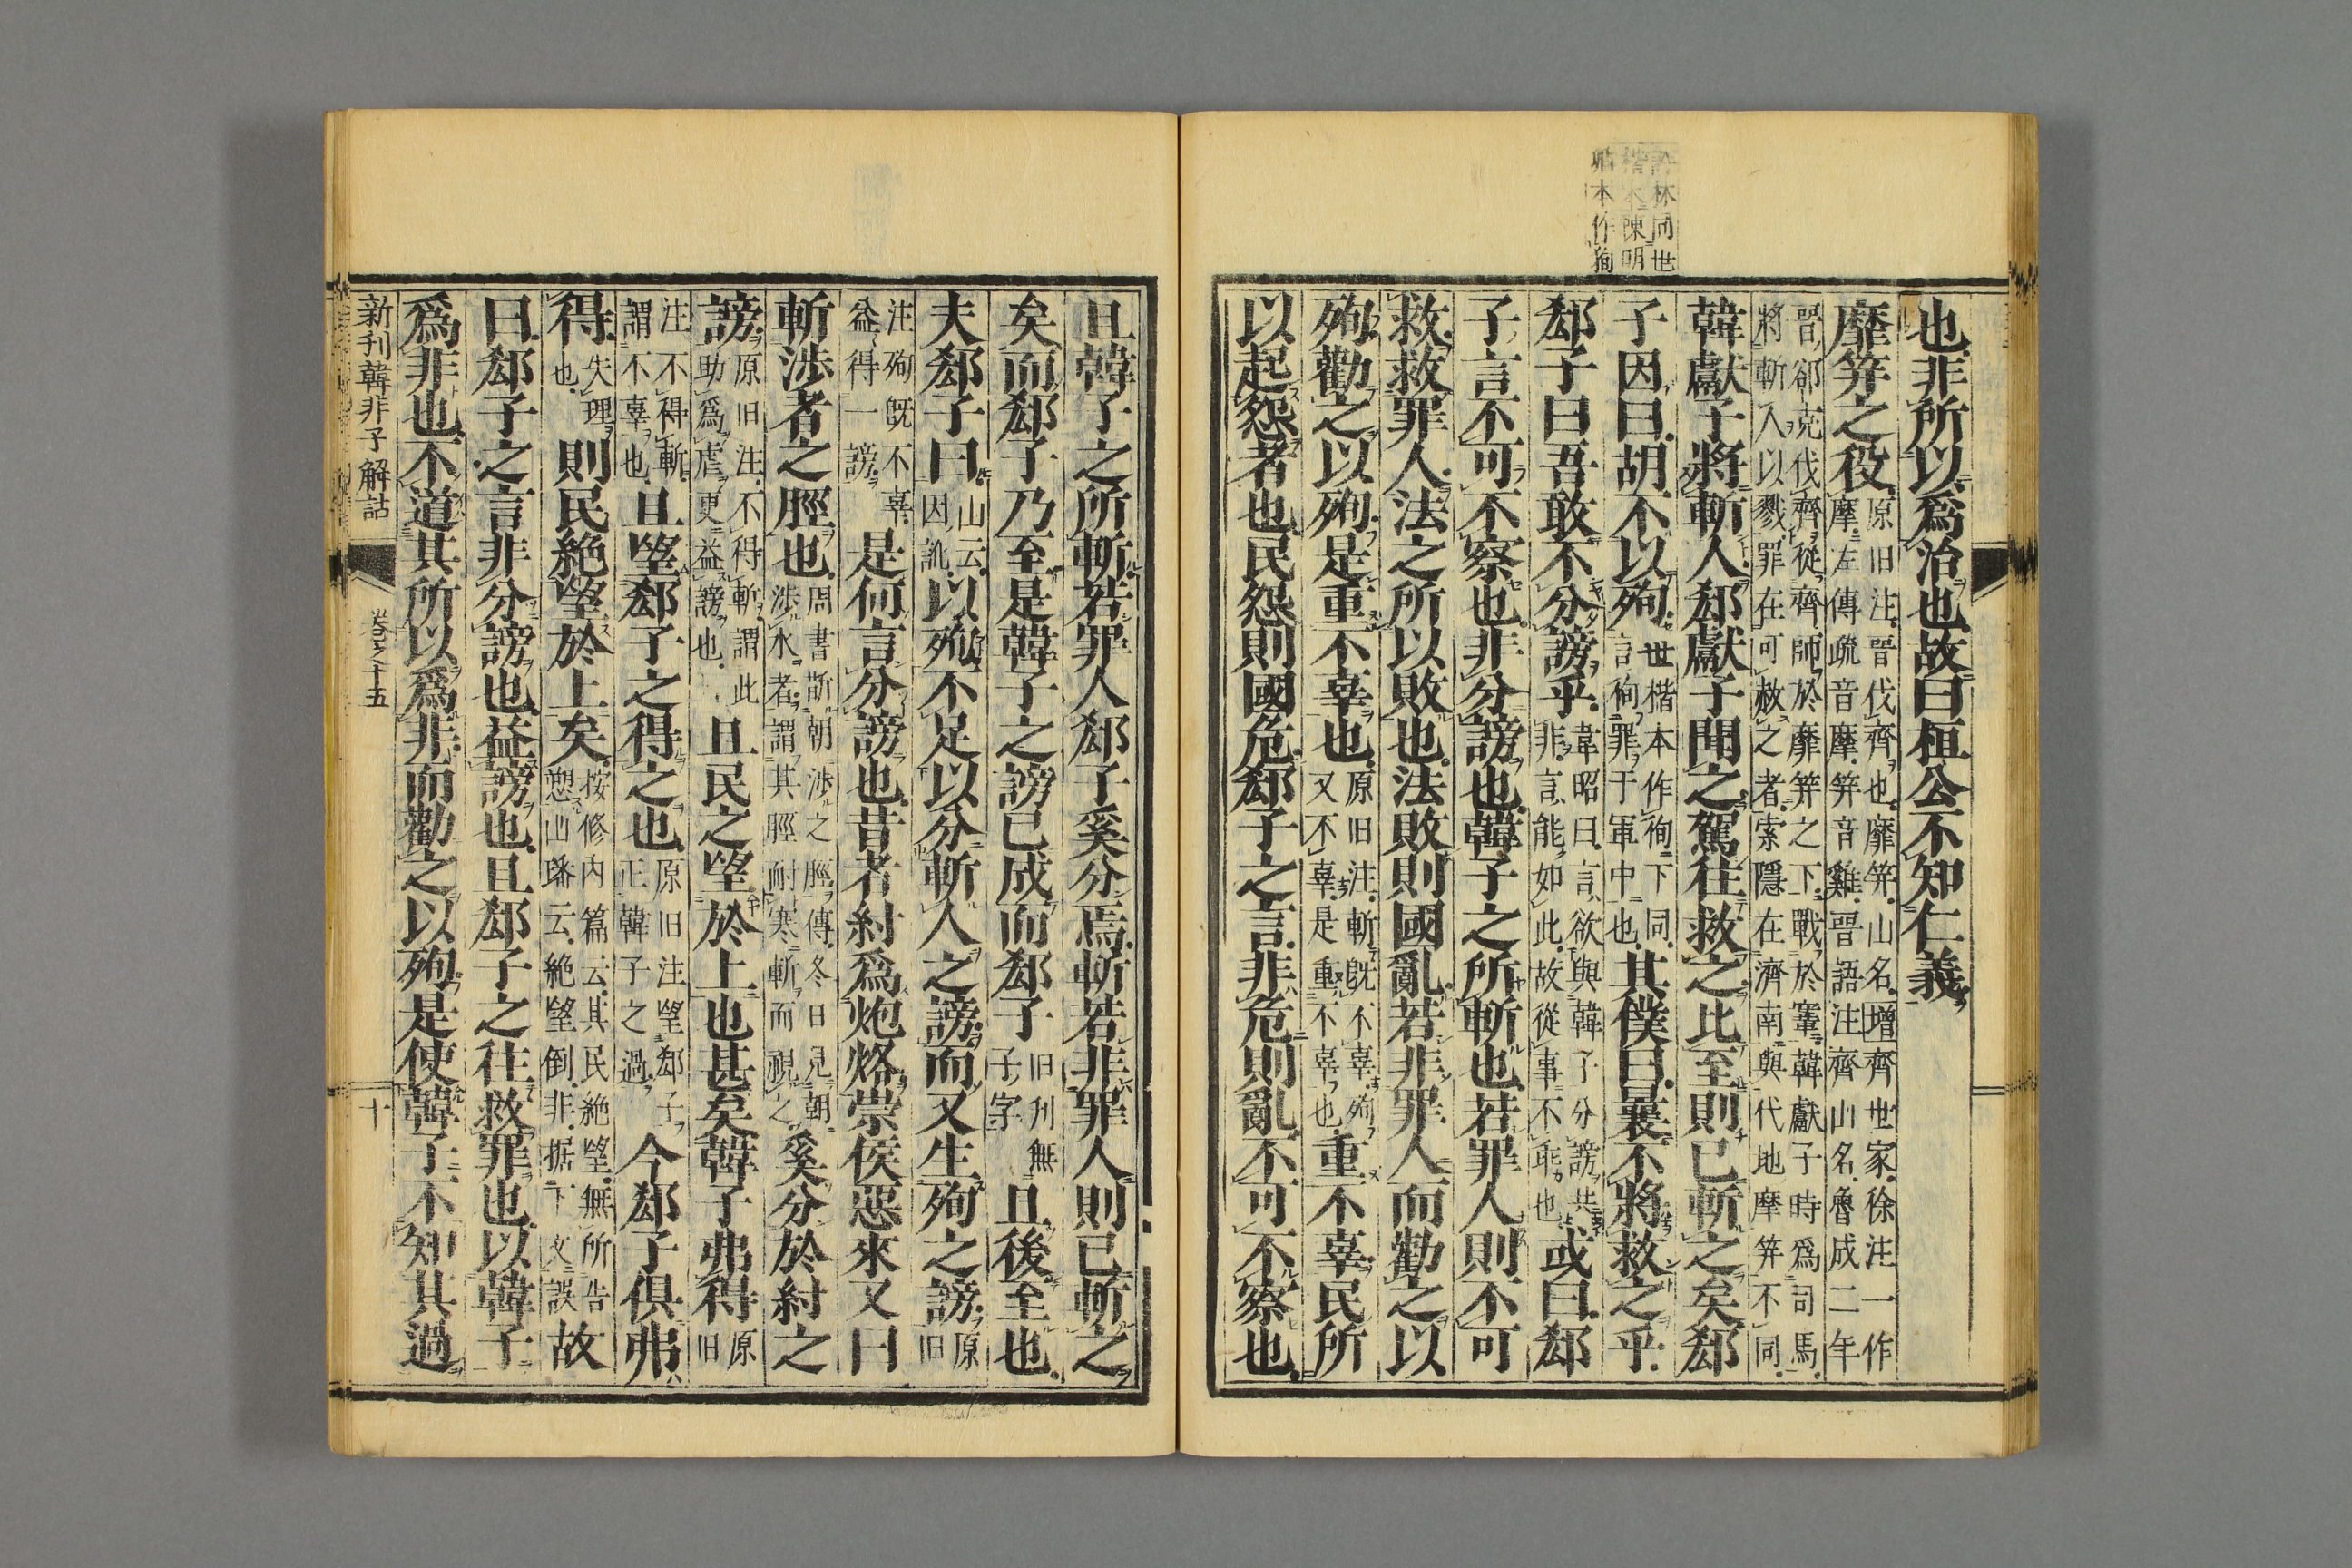 許林同世
楷本陳明
卿本作徇
也非所以爲治也故曰桓公不知仁義
靡筓之役原旧注晋伐齊也靡筓山名增齊世家徐注一作
摩左傳疏音摩筓音雞晋語注齊山名魯成二年
晋郤克伐齊從齊師於靡筓之下戰於鞌韓獻子時爲司馬
將斬人以戮罪在可赦之者索隱在濟南與代地摩筓不同
韓獻子將斬人郄獻子聞之駕往救之比至則已斬之矣郄
子因曰胡不以殉世楷本作徇下同
言徇罪于軍中也其僕曰曩不將救之乎
郄子曰吾敢不分謗乎韋昭曰言欲與韓子分謗共
非言能如此故從事不乖也或曰郄
子言不可不察也非分謗也韓子之所斬也若罪人則不可
救救罪人法之所以敗也法敗則國亂若非罪人而勸之以
殉勸之以殉是重不辜也原旧注斬既不辜殉
又不辜是重不辜也重不辜民所
以起怨者也民怨則國危郄子之言非危則亂不可不察也
且韓子之所斬若罪人郄子奚分焉斬若非罪人則已斬之
矣而郄子乃至是韓子之謗已成而郄子旧刋無
子字且後至也
夫郄子曰山云
因訛以殉不足以分斬人之謗而又生殉之謗原旧
注殉既不辜
益得一謗是何言分謗也昔者紂爲炮烙崇侯惡來又曰
斬涉者之脛也周書斮朝涉之脛傳冬日見朝
涉水者謂其脛耐寒斬而視之奚分於紂之
謗原旧注不得斬謂此
助爲虐更益謗也且民之望於上也甚矣韓子弗得原旧
注不得斬
謂不辜也且望郄子之得之也原旧注望郄子
正韓子之過今郄子俱弗
得失理
也則民絶望於上矣按修内篇云其民絶望無所告
愬山璠云絶望倒非据下文誤故
曰郄子之言非分謗也益謗也且郄子之往救罪也以韓子
爲非也不道其所以爲非而勸之以殉是使韓子不知其過
新刋韓非子解詁 卷之十五 十